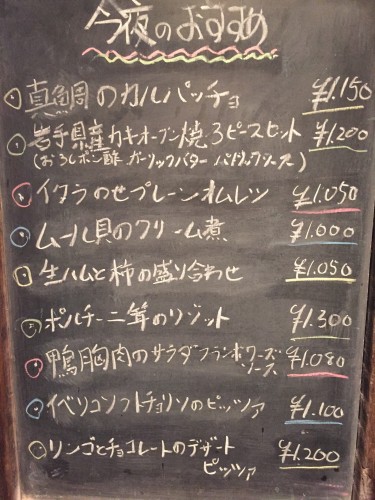 今夜のおすすめ
真鯛のカルパッチョ ¥1.150
岩手県産カキオーブン焼 3ピースセット ¥1.200
(おろしポン酢 ガーリックバター バジルソース)
イクラのせプレーンオムレツ ¥1.050
ムール貝のクリーム煮 ¥1.000
生ハムと柿の盛り合わせ ¥1.050
ポルチーニ茸のリゾット ¥1.300
鴨胸肉のサラダフランボワーズ ¥1.080
ソース
イベリコソフトチョリソのピッツァ ¥1.100
リンゴとチョコレートのデザート ¥1.200
ピッツァ